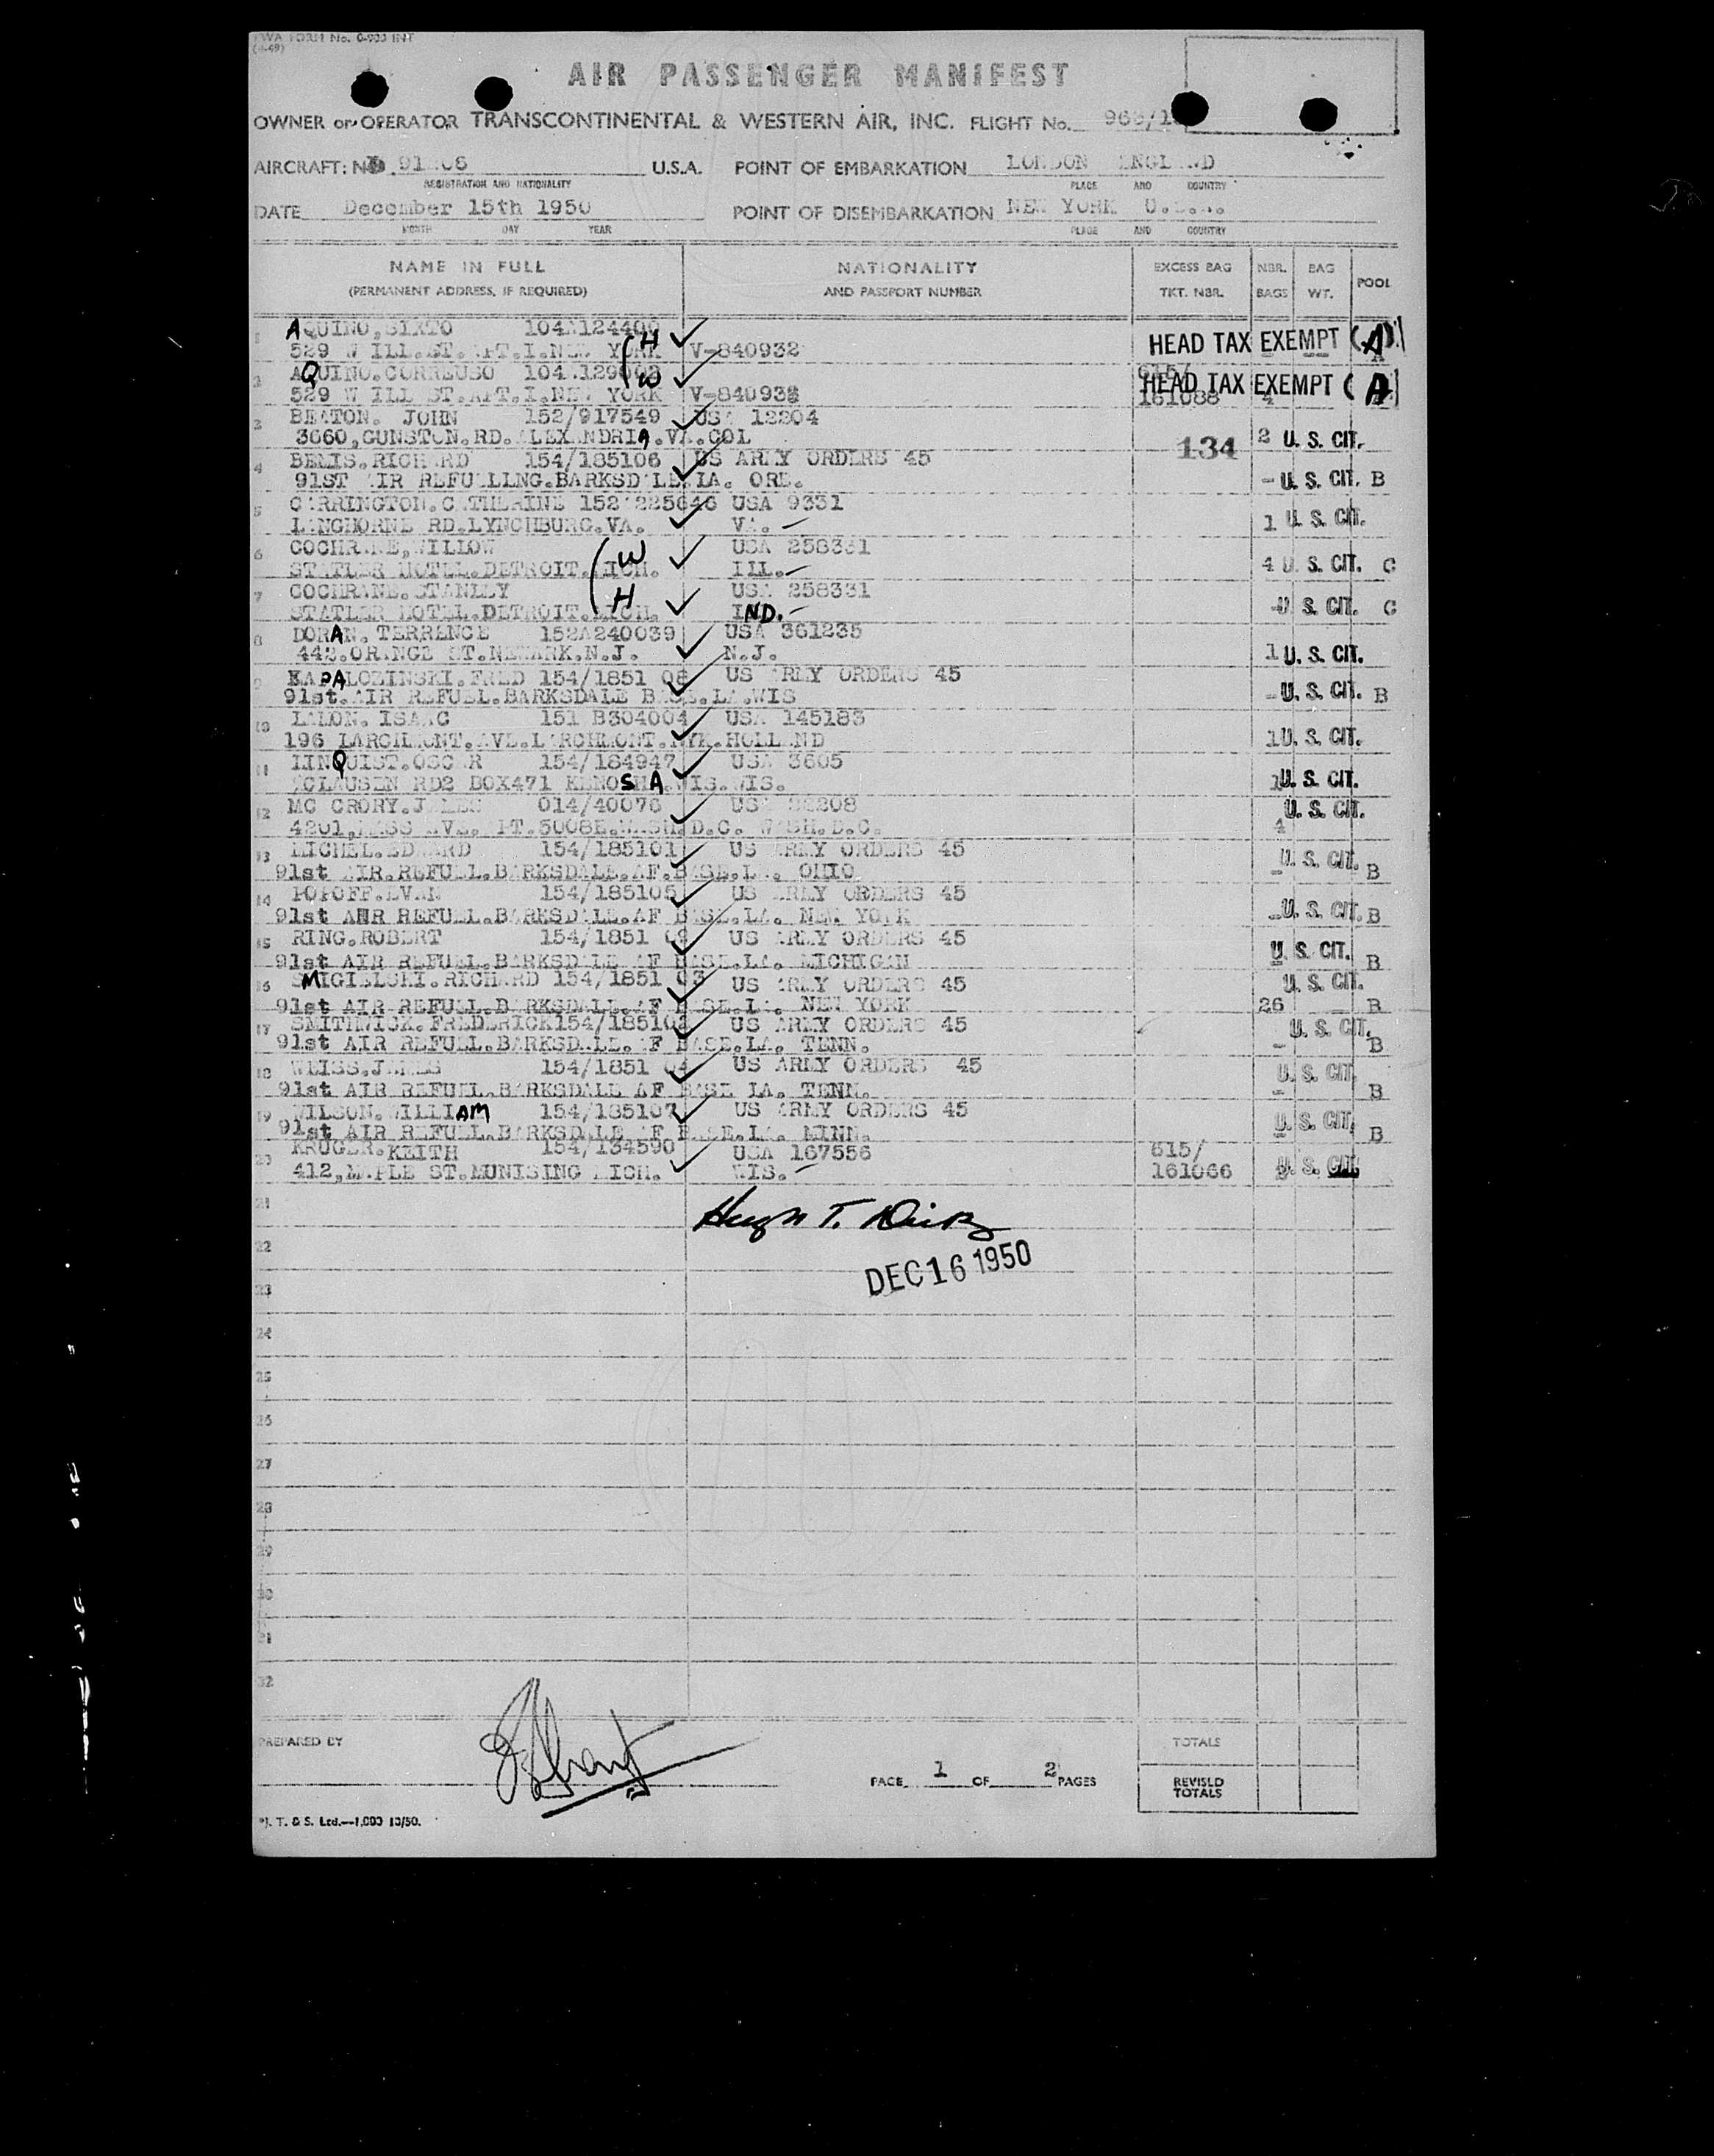 TWA FORM No. 0-983 INT
(4-49)
AIR PASSENGER MANIFEST
OWNER or OPERATOR TRANSCONTINENTAL & WESTERN AIR, INC. FLIGHT No.
AIRCRAFT: No. U.S.A. POINT OF EMBARKATION LONDON ENGLAND
REGISTRATION AND NATIONALITY PLACE AND COUNTRY
DATE December 15th 1950 POINT OF DISEMBARKATION NEW YORK U.S.A.
MONTH DAY YEAR PLACE AND COUNTRY
NAME IN FULL NATIONALITY EXCESS BAG NBR. BAG POOL
(PERMANENT ADDRESS, IF REQUIRED) AND PASSPORT NUMBER TKT. NBR. BAGS WT.
1 AQUINO, SIXTO H HEAD TAX EXEMPT (A)
529 W ILL.ST.APT.I.NEW YORK V-840932
2 AQUINO. W 615/ HEAD TAX EXEMPT (A)
529 W ILL ST.APT.I.NEW YORK 161088 4
3 BEATON. JOHN 152/917549 USA 12204
3660,GUNSTON.RD.ALEXANDRIA.VA.COL 134 2 U. S. CIT.
4 BEMIS.RICHARD 154/185106 US ARMY ORDERS 45
91ST AIR REFUELLING.BARKSDALE.LA. ORE. - U. S. CIT. B
5 CARRINGTON.CATHERINE 152A225646 USA 9331
LANGHORNE RD.LYNCHBURG.VA. VA. 1 U. S. CIT.
6 COCHRANE,WILLOW W USA 258331
STATLER HOTEL.DETROIT.MICH. ILL. 4 U. S. CIT. C
7 COCHRANE.STANLEY H USA 258331
STATLER HOTEL.DETROIT.MICH. IND. - U. S. CIT. C
8 DORAN. TERRENCE 152A240039 USA 361235
442.ORANGE ST.NEWARK.N.J. N.J. 1 U. S. CIT.
9 FRED 154/1851 08 US ARMY ORDERS 45
91st.AIR REFUEL.BARKSDALE BASE.LA.WIS - U. S. CIT. B
10 ISAAC 151 B304004 USA 145183
196 LARCHMONT.AVE.LARCHMONT.NYK.HOLLAND 1 U. S. CIT.
11 LINQUIST.OSCAR 154/184947 USA 3605
CLAUSEN RD2 BOX471 KENOSHA.WIS.WIS. 1 U. S. CIT.
12 MC CRORY.JAMES 014/40076 USA U. S. CIT.
4201,MASS AVE. PT.5008E.WASH.D.C. WASH.D.C. 4
13 MICHEL.EDWARD 154/185101 US ARMY ORDERS 45
91st AIR.REFUEL.BARKSDALE.AF.BASE.LA. OHIO - U. S. CIT. B
14 POPOFF.EVAN 154/185105 US ARMY ORDERS 45
91st AIR REFUEL.BARKSDALE.AF BASE.LA. NEW YORK - U. S. CIT. B
15 RING.ROBERT 154/1851 US ARMY ORDERS 45
91st AIR REFUEL.BARKSDALE AF BASE.LA. MICHIGAN U. S. CIT. B
16 SMIGIELSKI.RICHARD 154/1851 03 US ARMY ORDERS 45 U. S. CIT.
91st AIR REFUEL.BARKSDALE.AF BASE.LA. NEW YORK 26 B
17 SMITHWICK.FREDERICK154/185102 US ARMY ORDERS 45 U. S. CIT.
91st AIR REFUEL.BARKSDALE. AF BASE.LA. TENN. - B
18 WEISS.JAMES 154/1851 04 US ARMY ORDERS 45 U. S. CIT.
91st AIR REFUEL.BARKSDALE AF BASE LA. TENN. - B
19 WILSON.WILLIAM 154/185107 US ARMY ORDERS 45
91st AIR REFUEL.BARKSDALE AF BASE.LA. MINN. U. S. CIT. B
20 KRUGER.KEITH 154/134590 USA 167556 615/
412,MAPLE ST.MUNISING MICH. WIS. 161066 U. S. CIT.
21
22
DEC 16 1950
23
24
25
26
27
28
29
30
31
32
PREPARED BY TOTALS
PAGE 1 OF 2 PAGES
REVISED
TOTALS
T. & S. Ltd.—1,000 10/50.